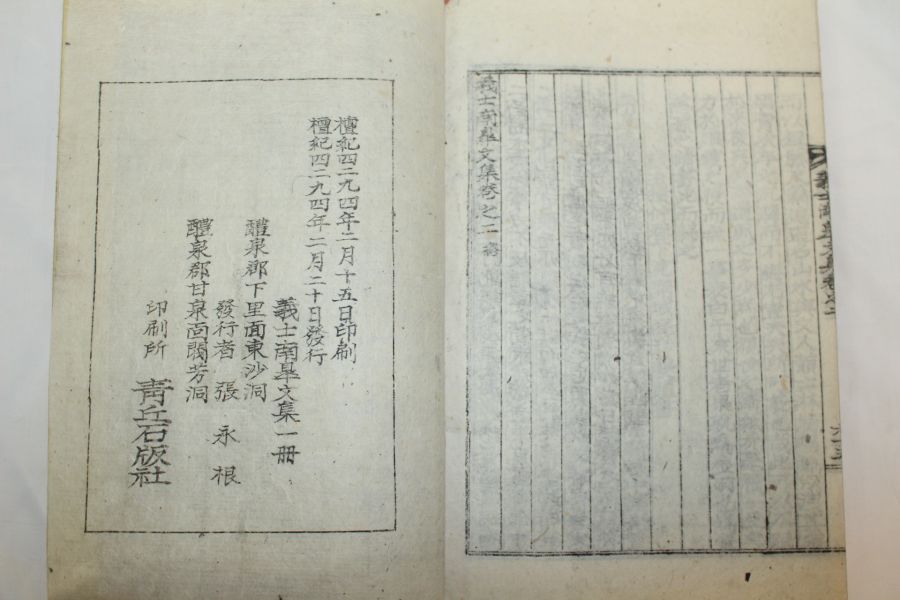 義士南皐文集卷之二終
義士南皐文集卷之二
檀紀四二九四年二月十五日印刷
檀紀四二九四年二月二十日發行
義士南皐文集一冊
醴泉郡下里面東沙洞
發行者 張永根
醴泉郡甘泉面閥芳洞
印刷所 靑丘石版社